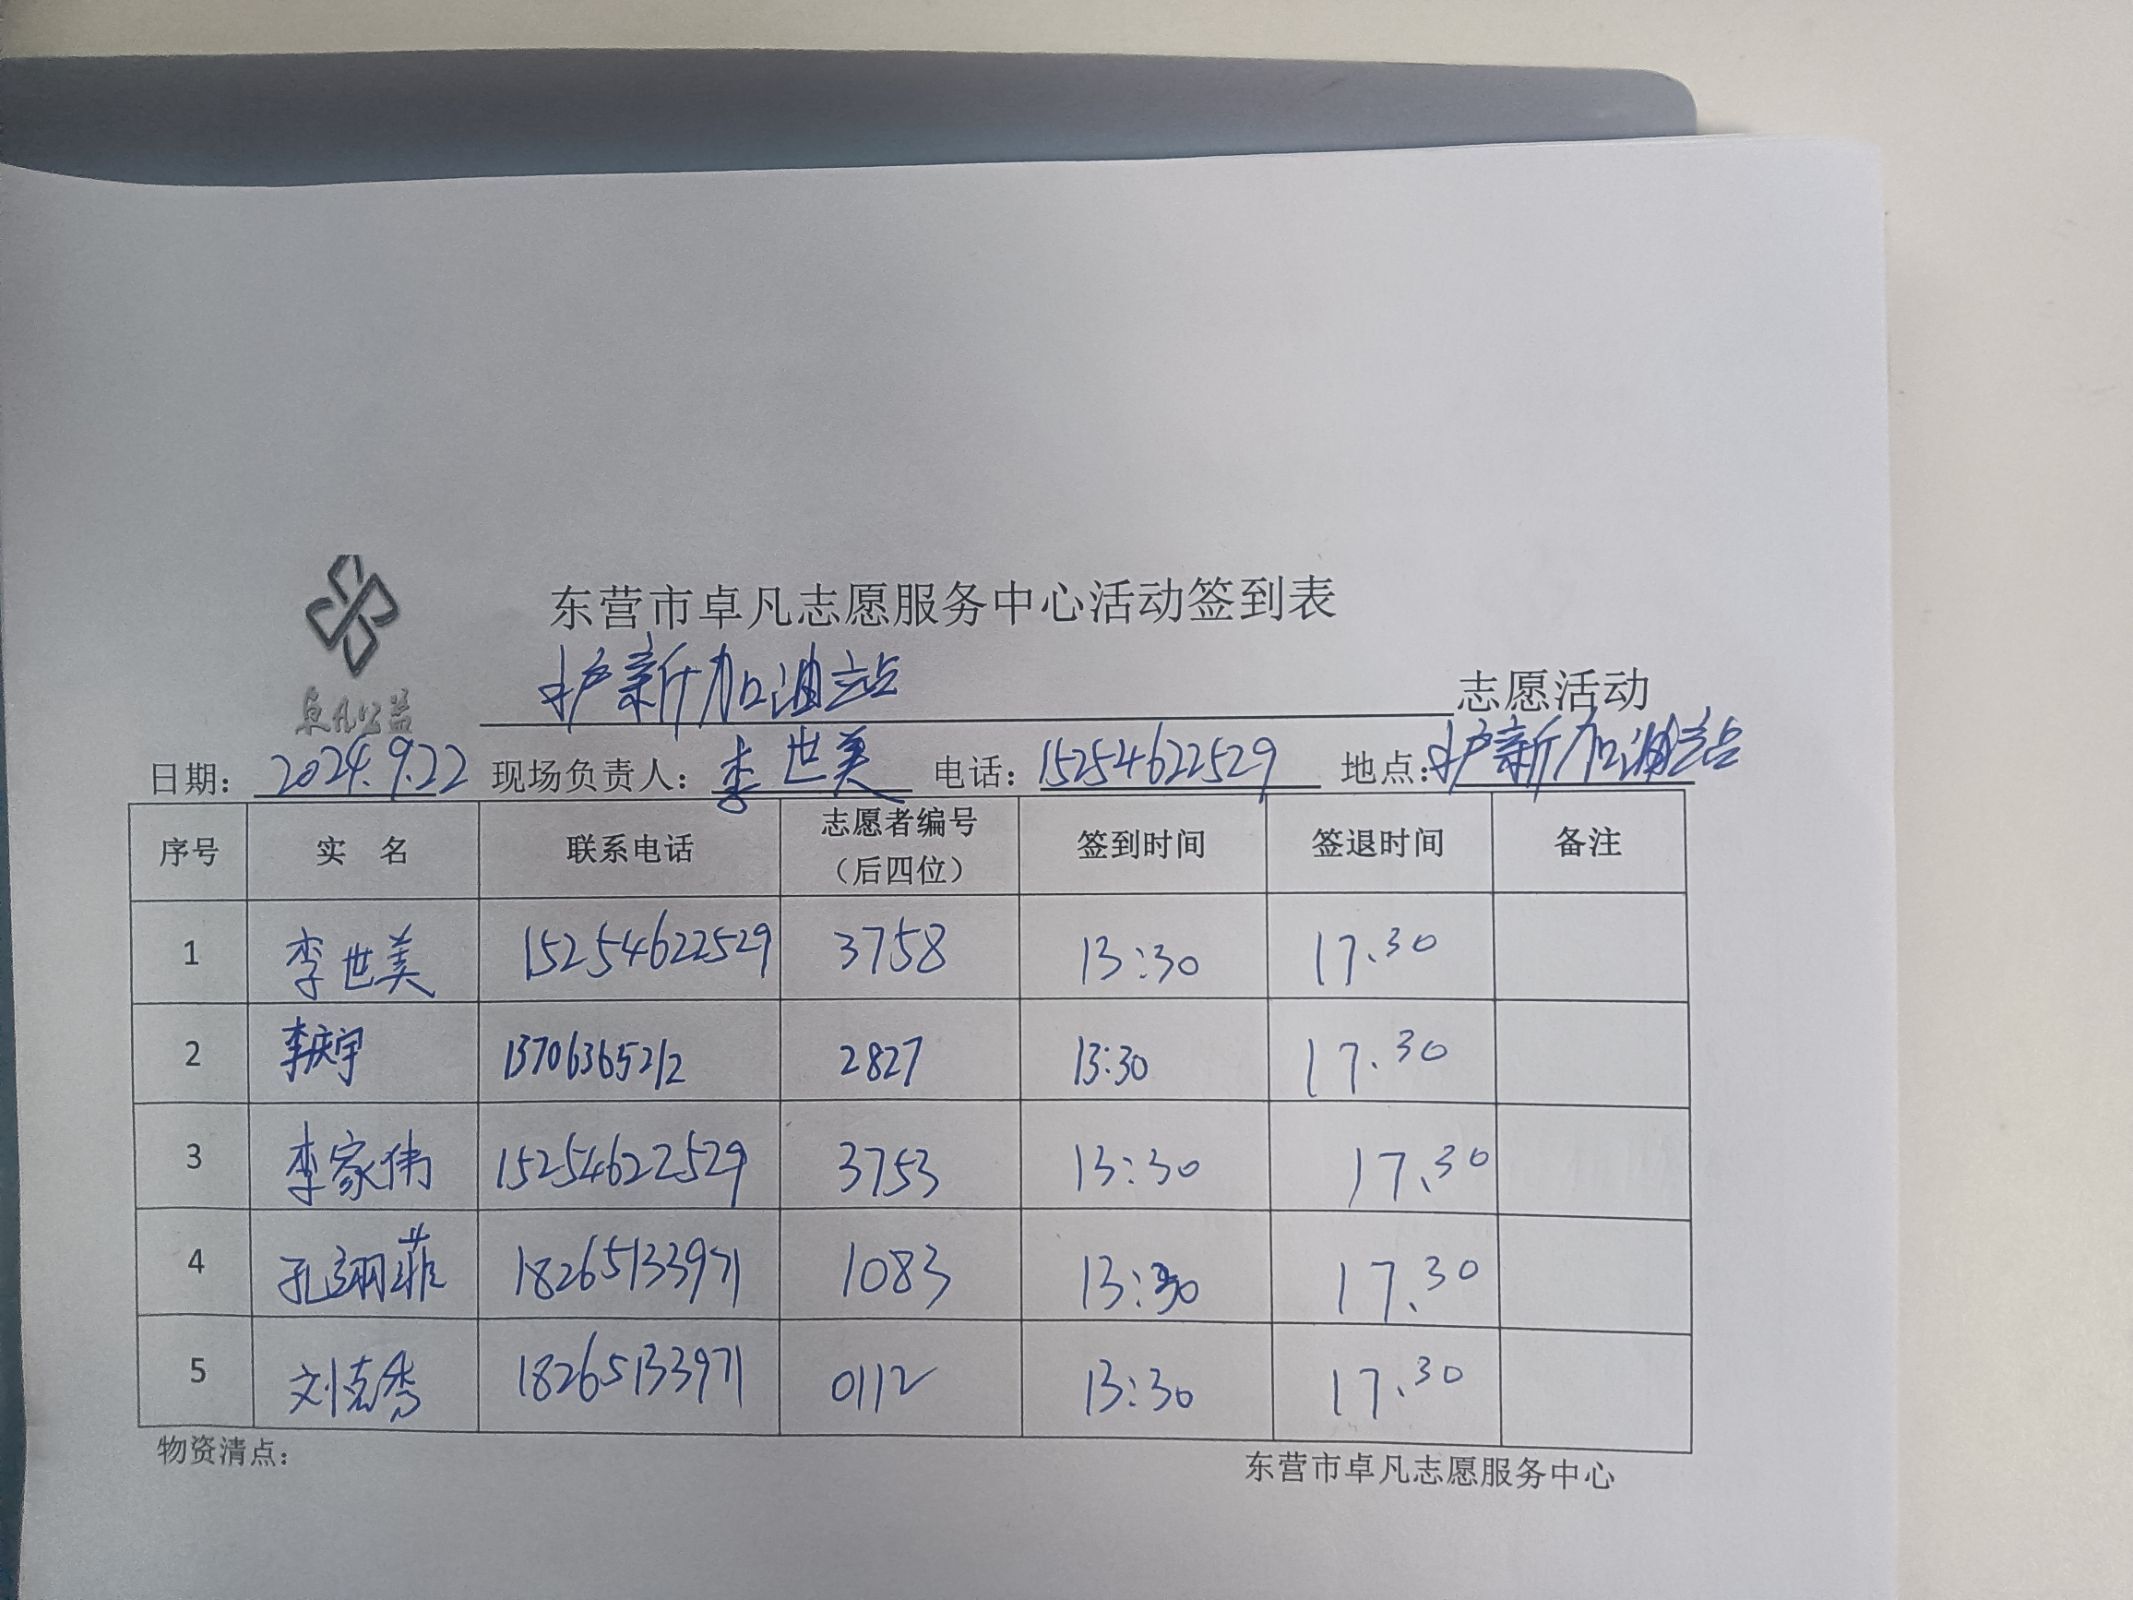 东营市卓凡志愿服务中心活动签到表
护新加油站 志愿活动
卓凡公益
日期: 2024.9.22 现场负责人: 李世美 电话: 15254622529 地点: 护新加油站
序号 实 名 联系电话 志愿者编号（后四位） 签到时间 签退时间 备注
1 李世美 15254622529 3758 13:30 17.30
2 李庆宇 13706365212 2827 13:30 17.30
3 李家伟 15254622529 3753 13:30 17.30
4 孔翊菲 18265133971 1083 13:30 17.30
5 刘克秀 18265133971 0112 13:30 17.30
物资清点: 东营市卓凡志愿服务中心